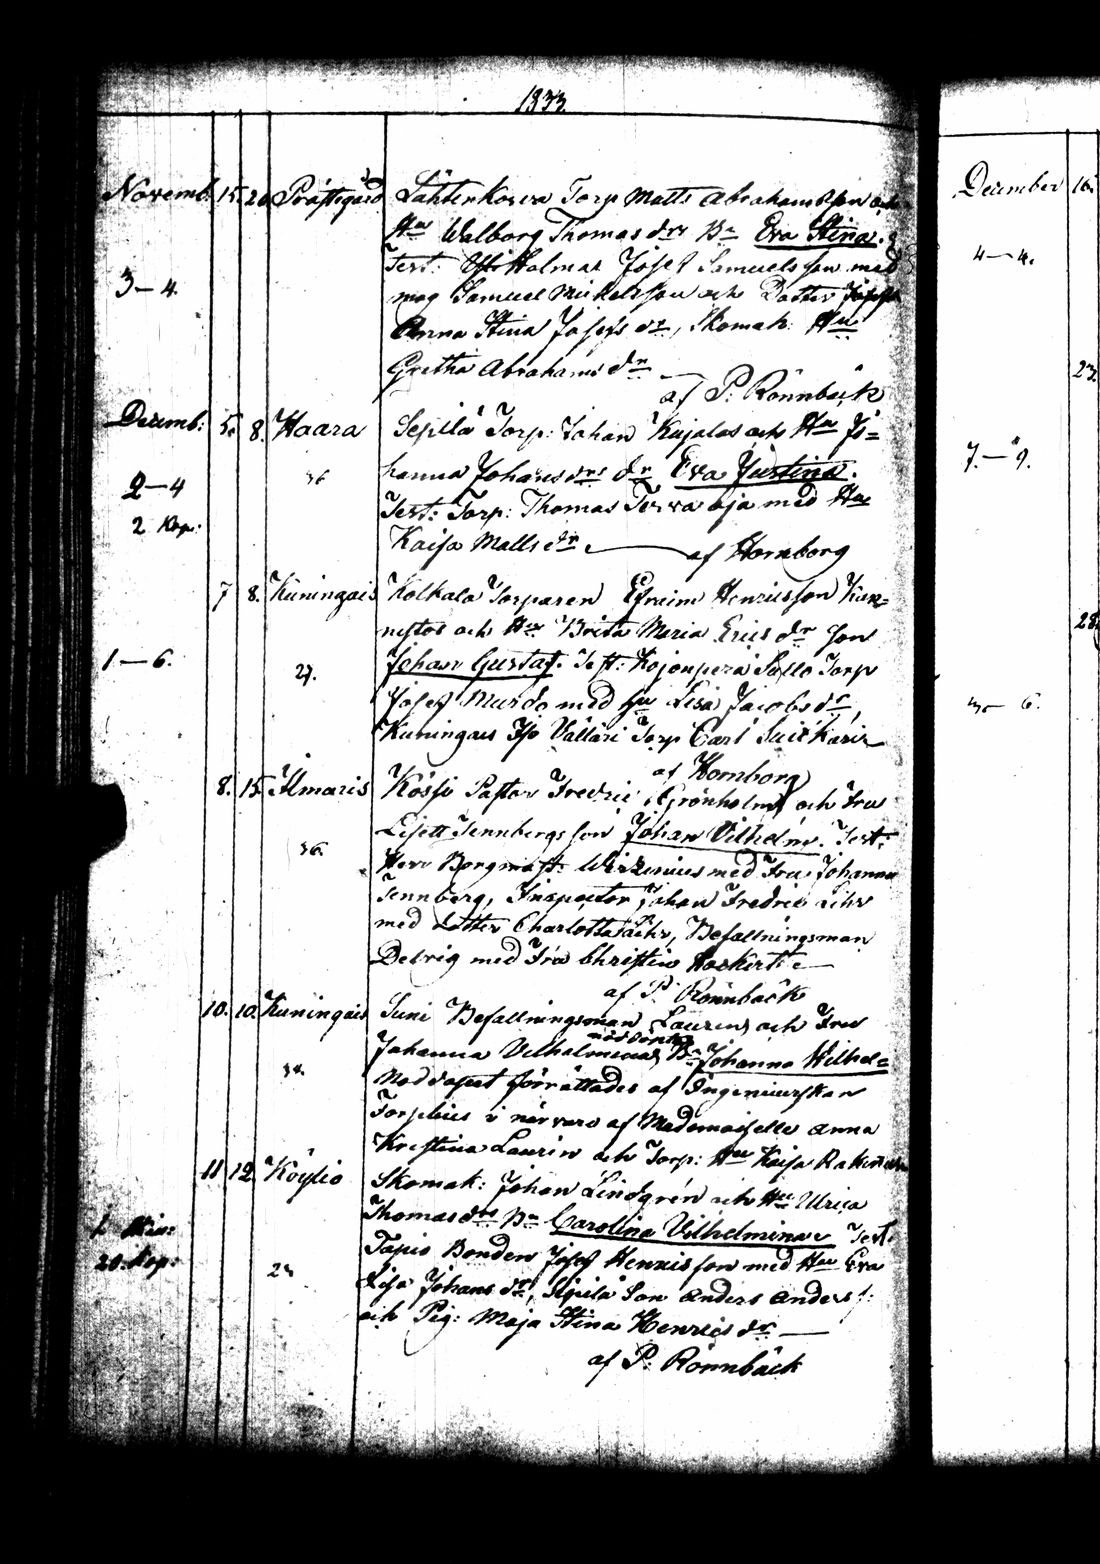 1833.
Novemb. 15. 20 Prästgård Lähtenkorva Torp Matts Abrahamsson och
Hu Walborg Thomas drs Bn Eva Stina.
Test: Holma Josef Samuelsson med
3—4. mag Samuel Mickelsson och Dotter
Anna Stina Josefs dr, Skomak: Hu
Gretha Abrahams dr
af P. Rönnback
Decemb: 5. 8. Haara Sepilä Torp: Johan Kajalas och Hu Jo=
36 hanna Johans drs dr Eva Justina.
2—4 Test: Torp: Thomas Tervaoja med Hu
2 Kop:
Kaisa Matts dr af Hornborg
7 8. Kuningais Kolkala Torparen Efraim Henricsson Kun=
nistos och Hu Brita Maria Erics dr Son
1—6. 27. Johan Gustaf. Test: Kojonperä Torp
Josef Murdo med Hu Lisa Jacobs dr,
Kuningais Iso Välläri Torp Carl
af Hornborg
8. 15. Ilmaris Kössi Pastor Fredric Grönholm och Fru
Lisett Tennbergs son Johan Vilhelm. Test:
36. Herr Borgmäst: Wirzenius med Fru Johanna
Tennberg, Inspector Johan Fredric Lihr
med Dotter Charlotta Lihr, Befallningsman
Detrig med Fru Christin
af P. Rönnback
10. 10. Kuningais Suni Befallningsman Laurin och Fru
Johanna Vilhelminas Bn Johanna Wilhel=
nöddöpta
Nöddopet förrättades af Ingenieurskan
Torpelius i närvaro af Mademoiselle Anna
Kristina Laurin och Torp: Hu Kaisa
11 12. Köyliö Skomak: Johan Lindgrén och Hu Ulrica
Thomas drs Bn Carolina Vilhelmina Test:
20. Kop: Tapio Bonden Josef Henricsson med Hu Eva
Lisa Johans dr, Sepilä Son Anders Anders s:
och Pig: Maja Stina Henrics dr —
af P. Rönnback
December 16.
4—4.
23.
7.—9.
28.
6.